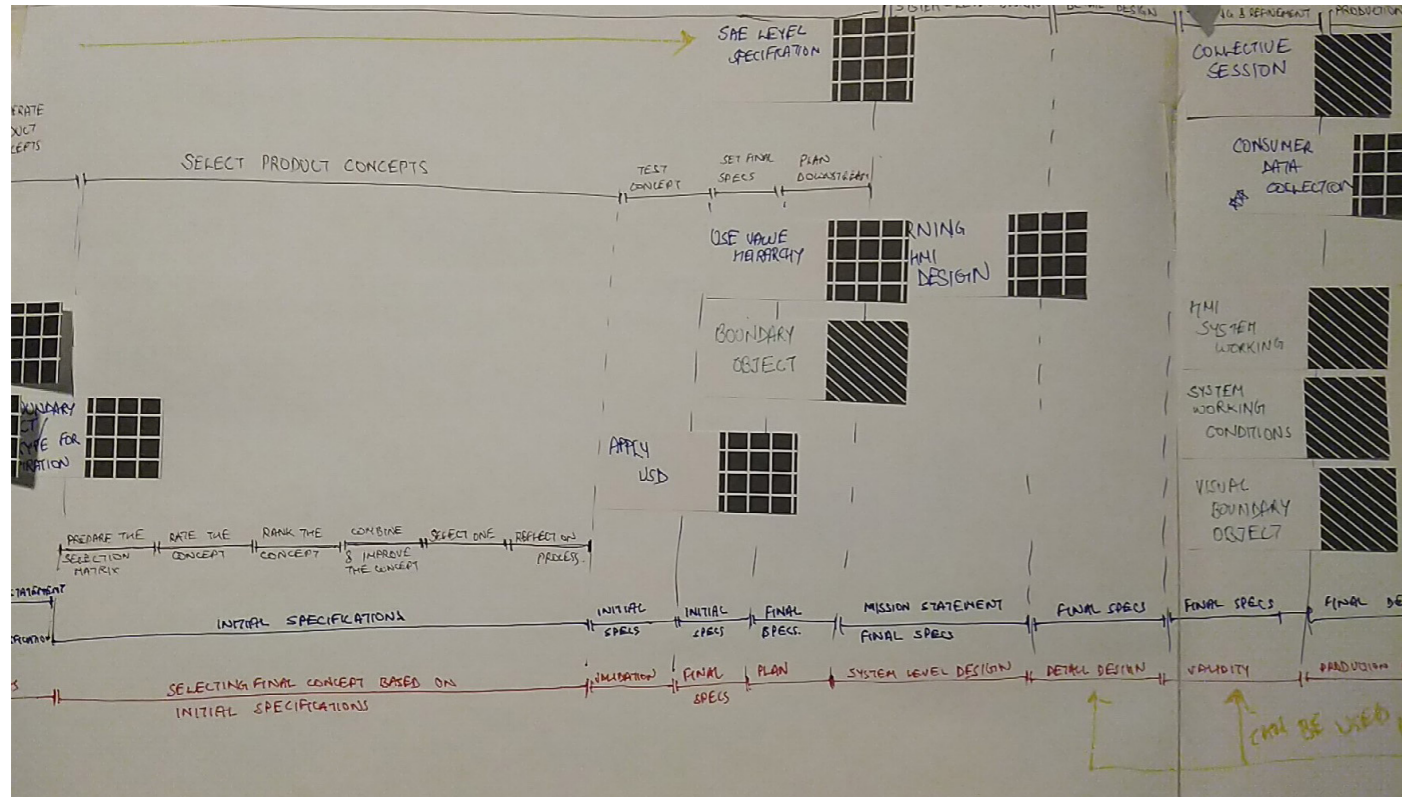 DESIGN
& REFINEMENT
PRODUCTION
SAE LEVEL
SPECIFICATION
COLLECTIVE
SESSION
ERATE
DUCT
CEPTS
SELECT PRODUCT CONCEPTS
TEST
CONCEPT
SET FINAL
SPECS
PLAN
DOWNSTREAM
CONSUMER
DATA
COLLECTION
USE VALUE
HEIRARCHY
RNING
HMI
DESIGN
BOUNDARY
OBJECT
HMI
SYSTEM
WORKING
SYSTEM
WORKING
CONDITIONS
OUNDARY
CT/
TYPE FOR
TRATION
APPLY
USD
VISUAL
BOUNDARY
OBJECT
PREPARE THE
SELECTION
MATRIX
RATE THE
CONCEPT
RANK THE
CONCEPT
COMBINE
& IMPROVE
THE CONCEPT
SELECT ONE
REFLECT ON
PROCESS.
STATEMENT
IFICATION
INITIAL SPECIFICATIONS
INITIAL
SPECS
INITIAL
SPECS
FINAL
SPECS.
MISSION STATEMENT
FINAL SPECS
FINAL SPECS
FINAL SPECS
FINAL DE
S
SELECTING FINAL CONCEPT BASED ON
INITIAL SPECIFICATIONS
VALIDATION
FINAL
SPECS
PLAN
SYSTEM LEVEL DESIGN
DETAIL DESIGN
VALIDITY
PRODUCTION
CAN BE USED